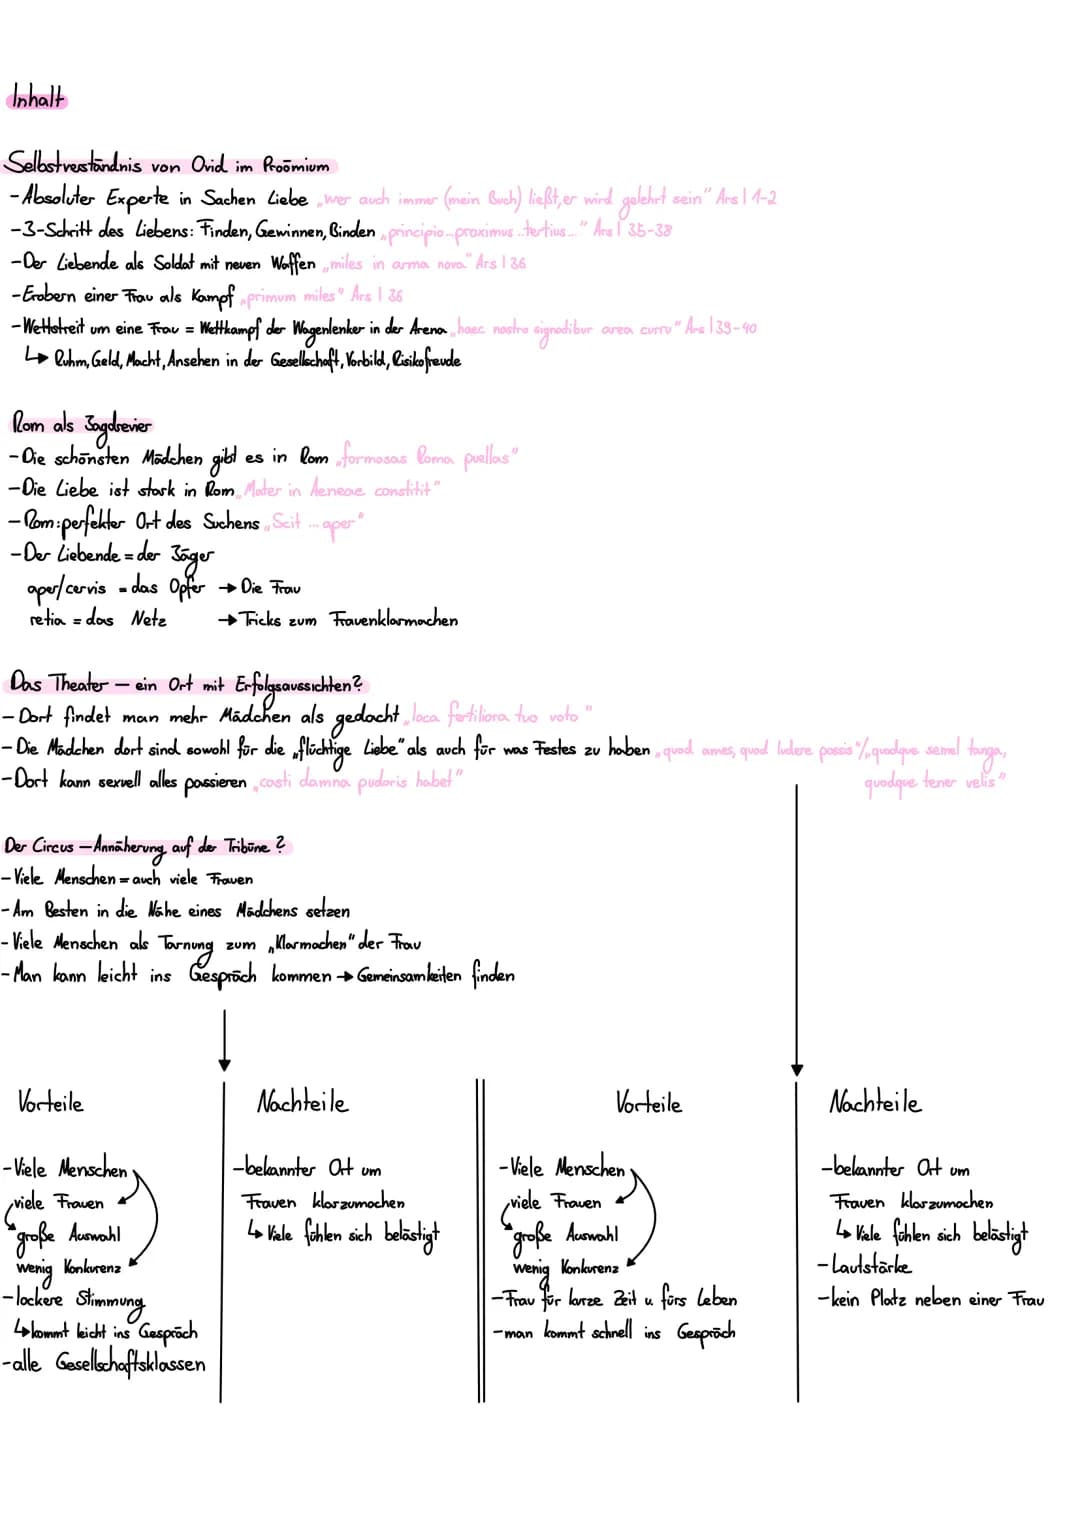 Inhalt
Selbstverständnis von Ovid im Proömium
-Absoluter Experte in Sachen Liebe „wer auch immer (mein Buch) ließt, er wird gelehrt sein" Ars I 1-2
-3-Schritt des Liebens: Finden, Gewinnen, Binden „principio...proximus...tertius..." Ars I 35-38
-Der Liebende als Soldat mit neuen Waffen „miles in arma nova" Ars I 36
-Erobern einer Frau als Kampf „primum miles" Ars I 36
-Wettstreit um eine Frau = Wettkampf der Wagenlenker in der Arena „haec nostro signabitur area curru" Ars I 39-40
↳ Ruhm, Geld, Macht, Ansehen in der Gesellschaft, Vorbild, Risikofreude
Rom als Jagdrevier
-Die schönsten Mädchen gibt es in Rom „formosas Roma puellas"
-Die Liebe ist stark in Rom „Mater in Aeneae constitit"
-Rom: perfekter Ort des Suchens „Scit ... aper"
-Der Liebende = der Jäger
aper/cervis = das Opfer → Die Frau
retia = das Netz → Tricks zum Frauenklarmachen
Das Theater – ein Ort mit Erfolgsaussichten?
- Dort findet man mehr Mädchen als gedacht „loca fertiliora tuo voto"
- Die Mädchen dort sind sowohl für die „flüchtige Liebe" als auch für was Festes zu haben „quod ames, quod ludere possis"/„quodque semel tanga,
quodque tener velis"
-Dort kann sexuell alles passieren „casti damna pudoris habet"
Der Circus – Annäherung auf der Tribüne?
- Viele Menschen = auch viele Frauen
- Am Besten in die Nähe eines Mädchens setzen
- Viele Menschen als Tarnung zum „Klarmachen" der Frau
- Man kann leicht ins Gespräch kommen → Gemeinsamkeiten finden
Vorteile
-Viele Menschen
viele Frauen
große Auswahl
wenig Konkurenz
-lockere Stimmung
↳ kommt leicht ins Gespräch
-alle Gesellschaftsklassen
Nachteile
-bekannter Ort um
Frauen klarzumachen
↳ Viele fühlen sich belästigt
Vorteile
-Viele Menschen
viele Frauen
große Auswahl
wenig Konkurenz
-Frau für kurze Zeit u. fürs Leben
-man kommt schnell ins Gespräch
Nachteile
-bekannter Ort um
Frauen klarzumachen
↳ Viele fühlen sich belästigt
- Lautstärke
-kein Platz neben einer Frau